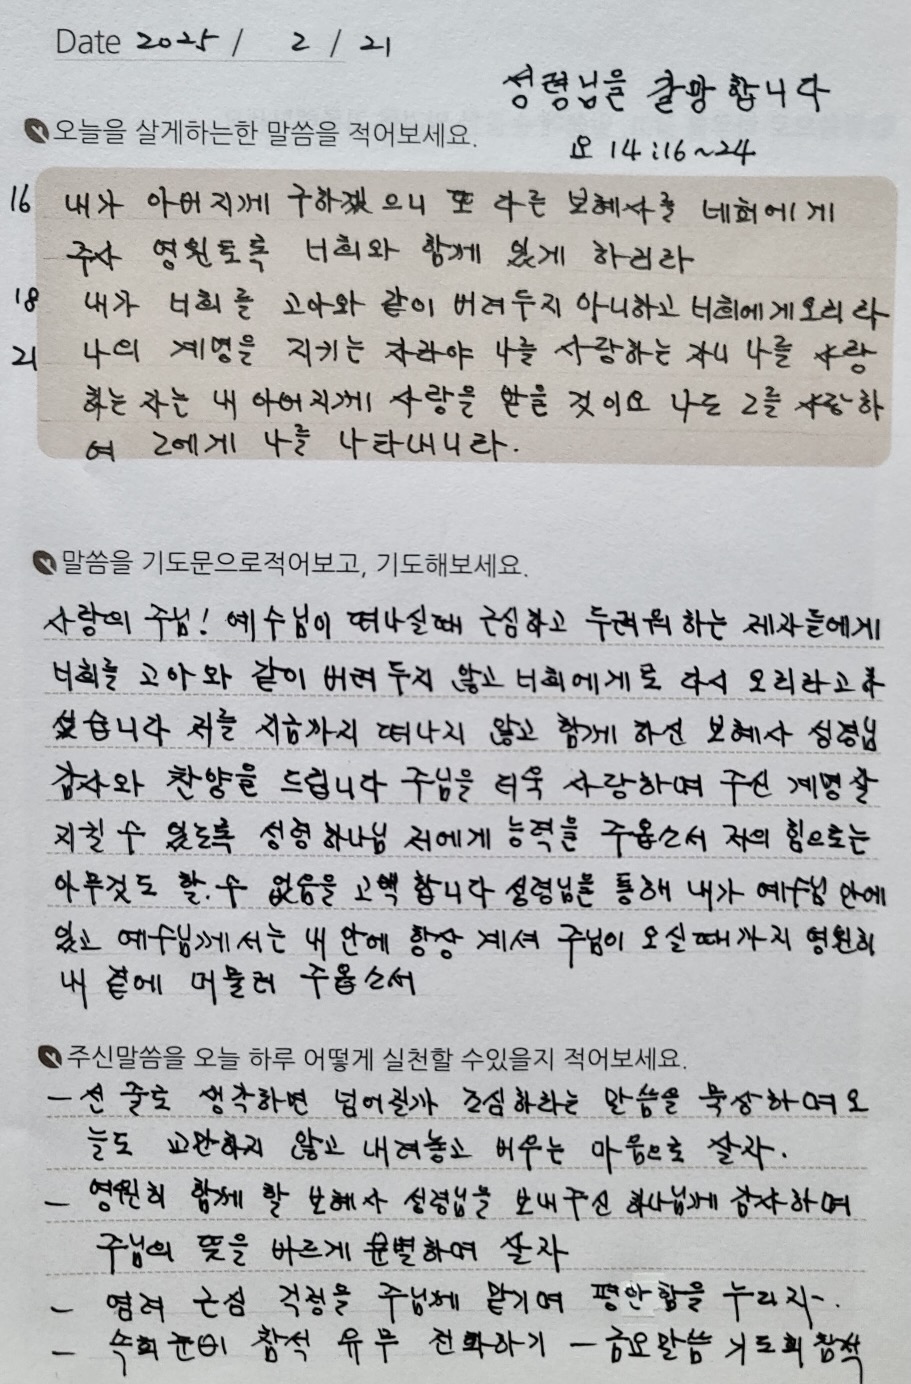 Date 2025 / 2 / 21
성령님을 갈망합니다
오늘을 살게하는한 말씀을 적어보세요.
요 14:16~24
16 내가 아버지께 구하겠으니 또 다른 보혜사를 네희에게
주사 영원토록 너희와 함께 있게 하리라
18 내가 너희를 고아와 같이 버려두지 아니하고 너희에게오리라
21 나의 계명을 지키는 자라야 나를 사랑하는 자니 나를 사랑
하는 자는 내 아버지께 사랑을 받을 것이요 나도 그를 사랑하
여 그에게 나를 나타내니라.
말씀을 기도문으로적어보고, 기도해보세요.
사랑의 주님! 예수님이 떠나실때 근심하고 두려워 하는 제자들에게
너희를 고아와 같이 버려 두지 않고 너희에게로 다시 오리라고하
셨습니다 저를 지금까지 떠나지 않고 함께 하신 보혜사 성령님
감사와 찬양을 드립니다 주님을 더욱 사랑하며 주신 계명잘
지킬 수 있도록 성령하나님 저에게 능력을 주옵소서 저의 힘으로는
아무것도 할.수 없음을 고백합니다 성령님을 통해 내가 예수님 안에
있고 예수님께서는 내 안에 항상 계셔 주님이 오실때까지 영원히
내 곁에 머물러 주옵소서
주신말씀을 오늘 하루 어떻게 실천할 수있을지 적어보세요.
- 선 줄로 생각하면 넘어질까 조심하라는 말씀을 묵상하며오
늘도 교만하지 않고 내려놓고 비우는 마음으로 살자.
- 영원히 함께 할 보혜사 성령님을 보내주신 하나님께 감사하며
주님의 뜻을 바르게 분별하며 살자
- 염려 근심 걱정을 주님께 맡기며 평안함을 누리자.
- 속회준비 참석 유무 전화하기 - 금요말씀 기도회참석